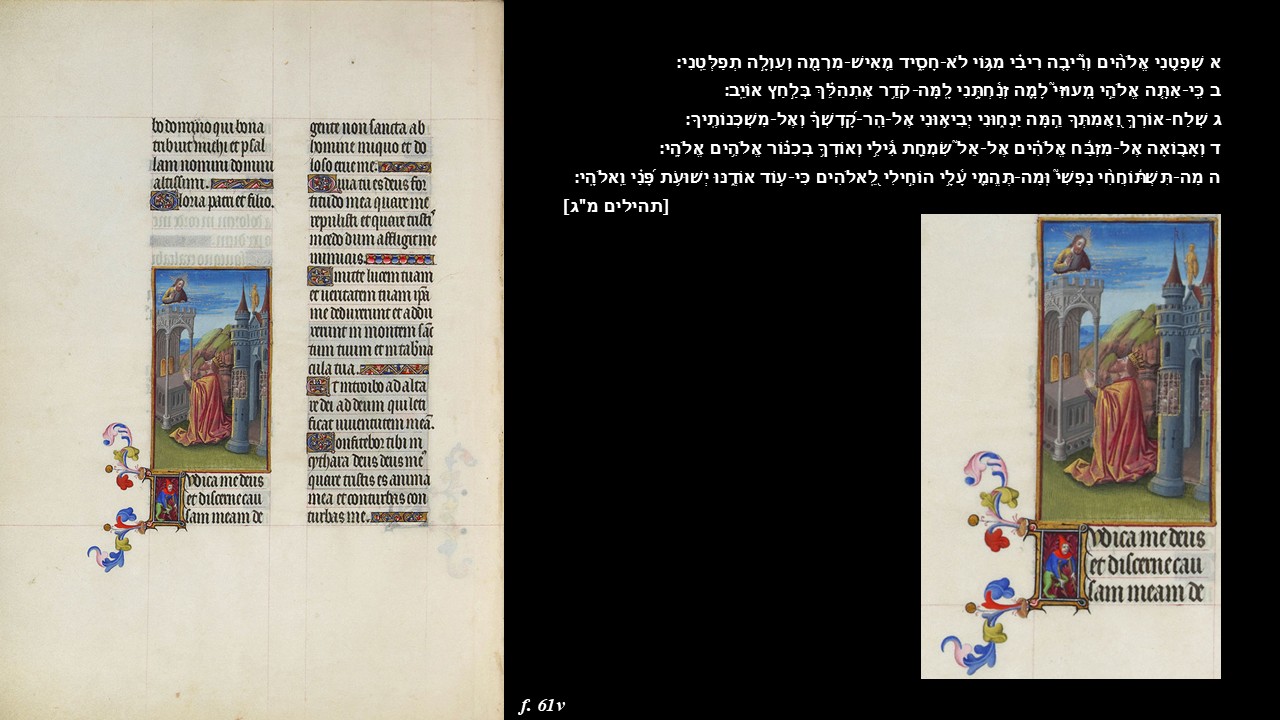 bo domino qui bona
tribuit michi et psal
lam nomini domini
altissimi.
Gloria patri et filio.
Iudica me deus
et discerne cau
sam meam de
gente non sancta ab
homine iniquo et do
loso erue me.
Quia tu es deus for
titudo mea quare me
repulisti et quare tristꝰ
incedo dum affligit me
inimicus.
Emitte lucem tuam
et veritatem tuam ip̄a
me deduxerunt et addu
xerunt in montem sc̄m
tuum et in tab̄na
cula tua.
Et introibo ad alta
re dei ad deum qui leti
ficat iuventutem meā.
Confitebor tibi in
cythara deus deus meꝰ
quare tristis es anima
mea et conturbas con
turbas me.
א שָׁפְטֵ֤נִי אֱלֹהִ֨ים וְרִ֘יבָ֤ה רִיבִ֗י מִגּ֥וֹי לֹא-חָסִ֑יד מֵ֤אִישׁ-מִרְמָ֖ה וְעַוְלָ֣ה תְפַלְּטֵֽנִי:
ב כִּֽי-אַתָּ֤ה אֱלֹהֵ֣י מָֽעוּזִּי֮ לָמָ֪ה זְנַ֫חְתָּ֥נִי לָֽמָּה-קֹדֵ֥ר אֶתְהַלֵּ֗ךְ בְּלַ֣חַץ אוֹיֵֽב:
ג שְׁלַח-אוֹרְךָ֣ וַ֭אֲמִתְּךָ הֵ֣מָּה יַנְח֑וּנִי יְבִיא֥וּנִי אֶל-הַֽר-קָ֝דְשְׁךָ֗ וְאֶל-מִשְׁכְּנוֹתֶֽיךָ:
ד וְאָב֤וֹאָה אֶל-מִזְבַּ֬ח אֱלֹהִ֗ים אֶל-אֵל֮ שִׂמְחַ֪ת גִּ֫ילִ֥י וְאוֹדְךָ֥ בְכִנּ֗וֹר אֱלֹהִ֥ים אֱלֹהָֽי:
ה מַה-תִּשְׁתּ֬וֹחֲחִ֨י נַפְשִׁי֮ וּֽמַה-תֶּהֱמִ֪י עָ֫לָ֥י הוֹחִ֣ילִי לֵֽ֭אלֹהִים כִּי-ע֣וֹד אוֹדֶ֑נּוּ יְשׁוּעֹ֥ת פָּ֝נַ֗י וֵֽאלֹהָֽי:
[תהילים מ"ג]
Iudica me deus
et discerne cau
sam meam de
f. 61v